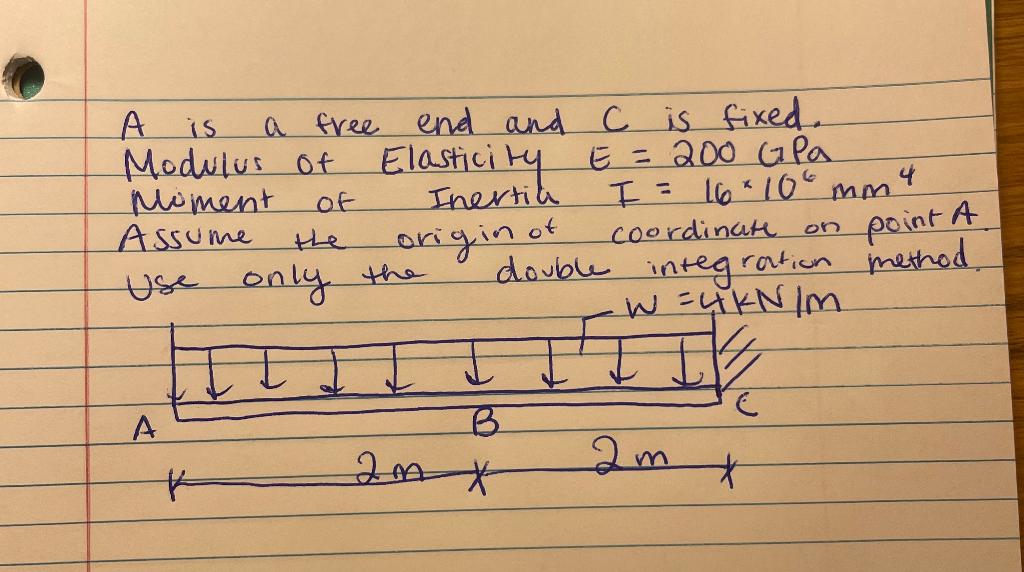 A is a free end and C is fixed.
Modulus of Elasticity E = 200 GPa
Moment of Inertia I = 16*10⁶ mm⁴
Assume the origin of coordinate on point A.
Use only the double integration method.
W = 4kN/m
A B C
2m 2m